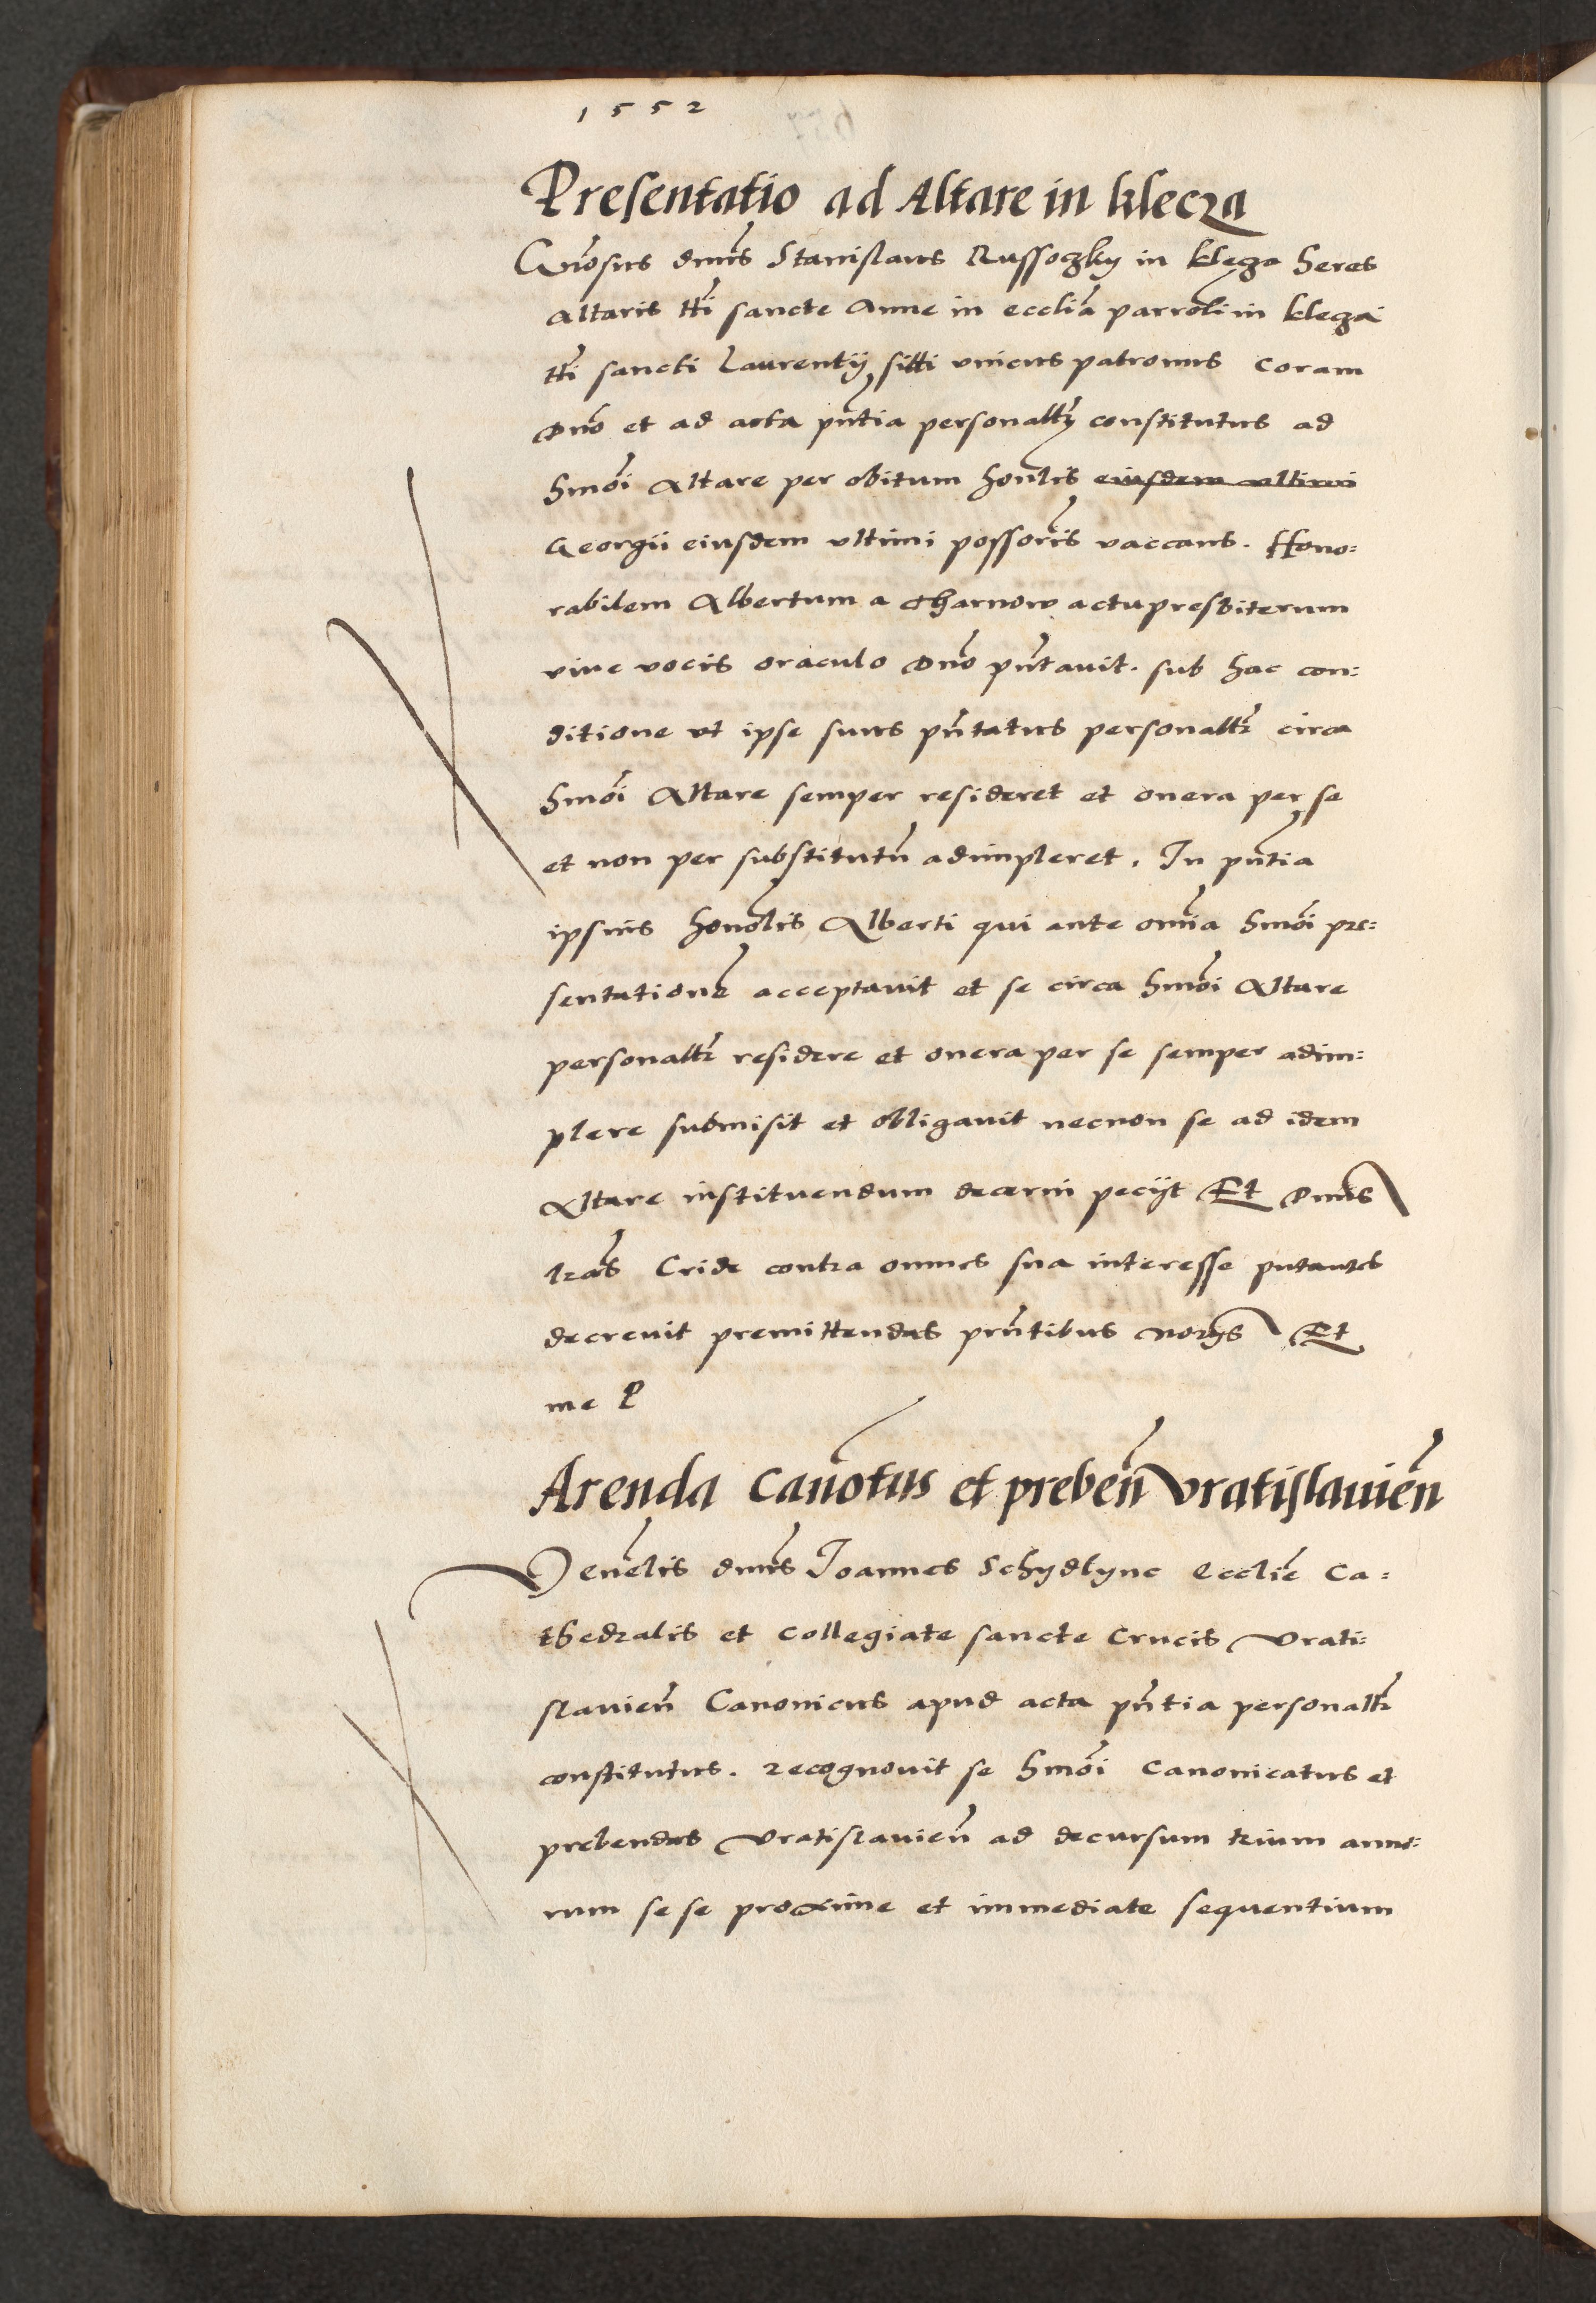 1552
Presentatio ad Altare in klecza
Gnosus dnus Stanislaus Russoczky in klecza heres
altaris tti sancte Anne in ecclia parroli in klecza
tti sancti Laurentij siti vnicus patronus coram
Dno et ad acta pntia personaltr constitutus ad
hmoi Altare per obitum honlis eiusdem ultimi
Georgii eiusdem vltimi possoris vaccans. Hono=
rabilem Albertum a Tharnow actu presbiterum
viue vocis oraculo Dno pntauit. sub hac con=
ditione vt ipse suus pntatus personaltr circa
hmoi Altare semper resideret et onera per se
et non per substitutu adimpleret. In pntia
ipsius honolis Alberti qui ante omia hmoi pre=
sentatione acceptauit et se circa hmoi Altare
personaltr residere et onera per se semper adim=
plere submisit et obligauit necnon se ad idem
Altare instituendum decerni pecijt Et Dnus
lras Cride contra omnes sua interesse putantes
decreuit premittendas pntibus norijs Et
me P
Arenda Canotus et preben Vratislauien
Venelis dnus Joannes Schydlync Ecclie Ca=
thedralis et Collegiate sancte Crucis Vrati=
slauien Canonicus apud acta pntia personaltr
constitutus. recognouit se hmoi Canonicatus et
prebendas Vratislauien ad decursum trium anno=
rum se se proxime et immediate sequentium